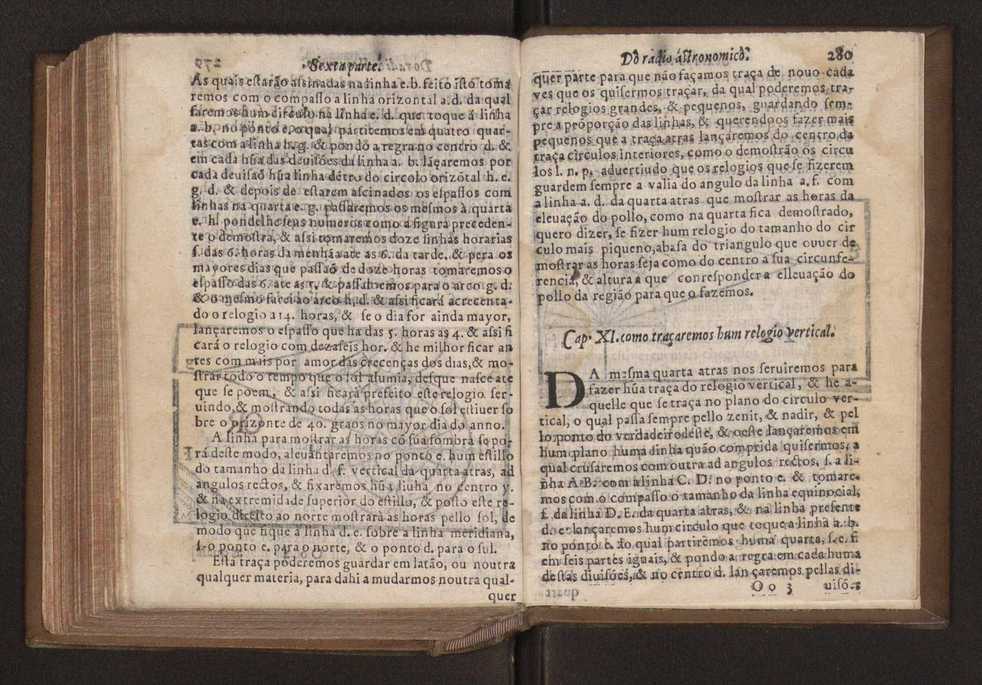 279 Sexta parte.
As quais estarão assinadas na linha e.b. feito isto toma
remos com o compasso a linha orizontal a.d. da qual
faremos hum circulo na linha e. d. que toque â linha
a. b. no ponto e. o qual partiremos em quatro quar-
tas com a linha h.g. & pondo a regra no centro d. &
em cada hũa das deuisões da linha a. b. lãçaremos por
cada deuisaõ hũa linha dẽtro do circolo orizõtal h. e.
g. d. & depois de estarem ascinados os espassos com
linhas na quarta e. g. passaremos os mesmos à quarta
e. h. pondelhe seus numeros como a figura preceden-
te o demostra, & assi tomaremos doze linhas horarias
s. das 6. horas da menhã ate as 6. da tarde. & pera os
mayores dias que passaõ de doze horas tomaremos o
espasso das 6. ate as 5. & passalohemos para o arco g. d.
& o mesmo farei ao arco h. d. & assi ficará acrecenta-
do o relogio a 14. horas, & se o dia for ainda mayor,
lançaremos o espasso que ha das 5. horas as 4. & assi fi
cará o relogio com dezaseis hor. & he milhor ficar an
tes com mais por amor das crecenças dos dias, & mo-
strar todo o tempo que o sol alumia, desque nasce ate
que se poem, & assi ficará prefeito este relogio ser-
uindo, & mostrando todas as horas que o sol estiuer so
bre o orizonte de 40. graos no mayor dia do anno.
A linha para mostrar as horas cõ sua sombra se po-
rá deste modo, aleuantaremos no ponto e. hum estillo
do tamanho da linha d. f. vertical da quarta atras, ad
angulos rectos, & fixaremos hũa liuha no centro y.
& na extremidade superior do estillo, & posto este re-
logio direito ao norte mostrarà as horas pello sol, de
modo que fique a linha d. e. sobre a linha meridiana,
s. o ponto e. para o norte, & o ponto d. para o sul.
Esta traça poderemos guardar em latão, ou noutra
qualquer materia, para dahi a mudarmos noutra qual-
quer
Do radio astronomico. 280
quer parte para que não façamos traça de nouo cada
ves que os quisermos traçar, da qual poderemos tra-
çar relogios grandes, & pequenos, guardando sem-
pre a proporção das linhas, & querendoos fazer mais
pequenos que a traça atras lançaremos do centro da
traça circulos interiores, como o demostrão os circu
los l. n. p. aduertiudo que os relogios que se fizerem
guardem sempre a valia do angulo da linha a. f. com
a linha a. d. da quarta atras que mostrar as horas da
eleuação do pollo, como na quarta fica demostrado,
quero dizer, se fizer hum relogio do tamanho do cir
culo mais piqueno, abasa do triangulo que ouuer de
mostrar as horas seja como do centro a sua circunfe-
rencia, & altura a que corresponder a elleuação do
pollo da região para que o fazemos.
Cap. XI. como traçaremos hum relogio vertical.
DA mesma quarta atras nos seruiremos para
fazer hũa traça do relogio vertical, & he a-
quelle que se traça no plano do circulo ver-
tical, o qual passa sempre pello zenit, & nadir, & pel
lo ponto do verdadeiro deste, & oeste lançaremos em
hum plano huma dinha quão comprida quisermos, a
qual crusaremos com outra ad angulos rectos, s. a li-
nha A. B. com a linha C. D. no ponto e. & tomare-
mos com o compasso o tamanho da linha equinocial,
s. da linha D. E. da quarta atras, & na linha presente
d. e. lançaremos hum circulo que toque a linha a. b.
no ponto e. do qual partirèmos huma quarta, s. e. f.
em seis partes iguais, & pondo a regra em cada huma
destas diuisões, & no centro d. lançaremos pellas di-
Oo 3 uisões